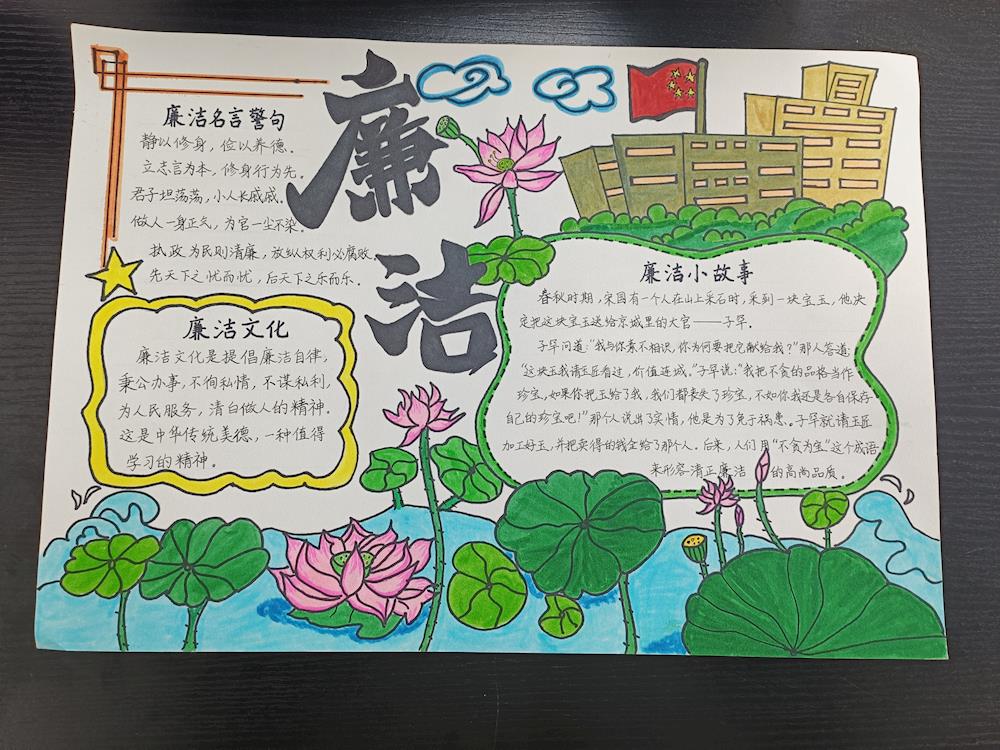 廉洁
廉洁名言警句
静以修身，俭以养德.
立志言为本，修身行为先.
君子坦荡荡，小人长戚戚.
做人一身正气，为官一尘不染.
执政为民则清廉，放纵权利必腐败.
先天下之忧而忧，后天下之乐而乐.
廉洁文化
廉洁文化是提倡廉洁自律，
秉公办事，不徇私情，不谋私利，
为人民服务，清白做人的精神.
这是中华传统美德，一种值得
学习的精神.
廉洁小故事
春秋时期，宋国有一个人在山上采石时，采到一块宝玉，他决
定把这块宝玉送给京城里的大官——子罕.
子罕问道："我与你素不相识，你为何要把它献给我？"那人答道：
"这块玉我请玉匠看过，价值连城."子罕说："我把不贪的品格当作
珍宝，如果你把玉给了我，我们都丧失了珍宝，不如你我还是各自保存
自己的珍宝吧！"那个人说出了实情，他是为了免于祸患.子罕就请玉匠
加工好玉，并把卖得的钱全给了那个人.后来，人们用"不贪为宝"这个成语
来形容清正廉洁的高尚品质.